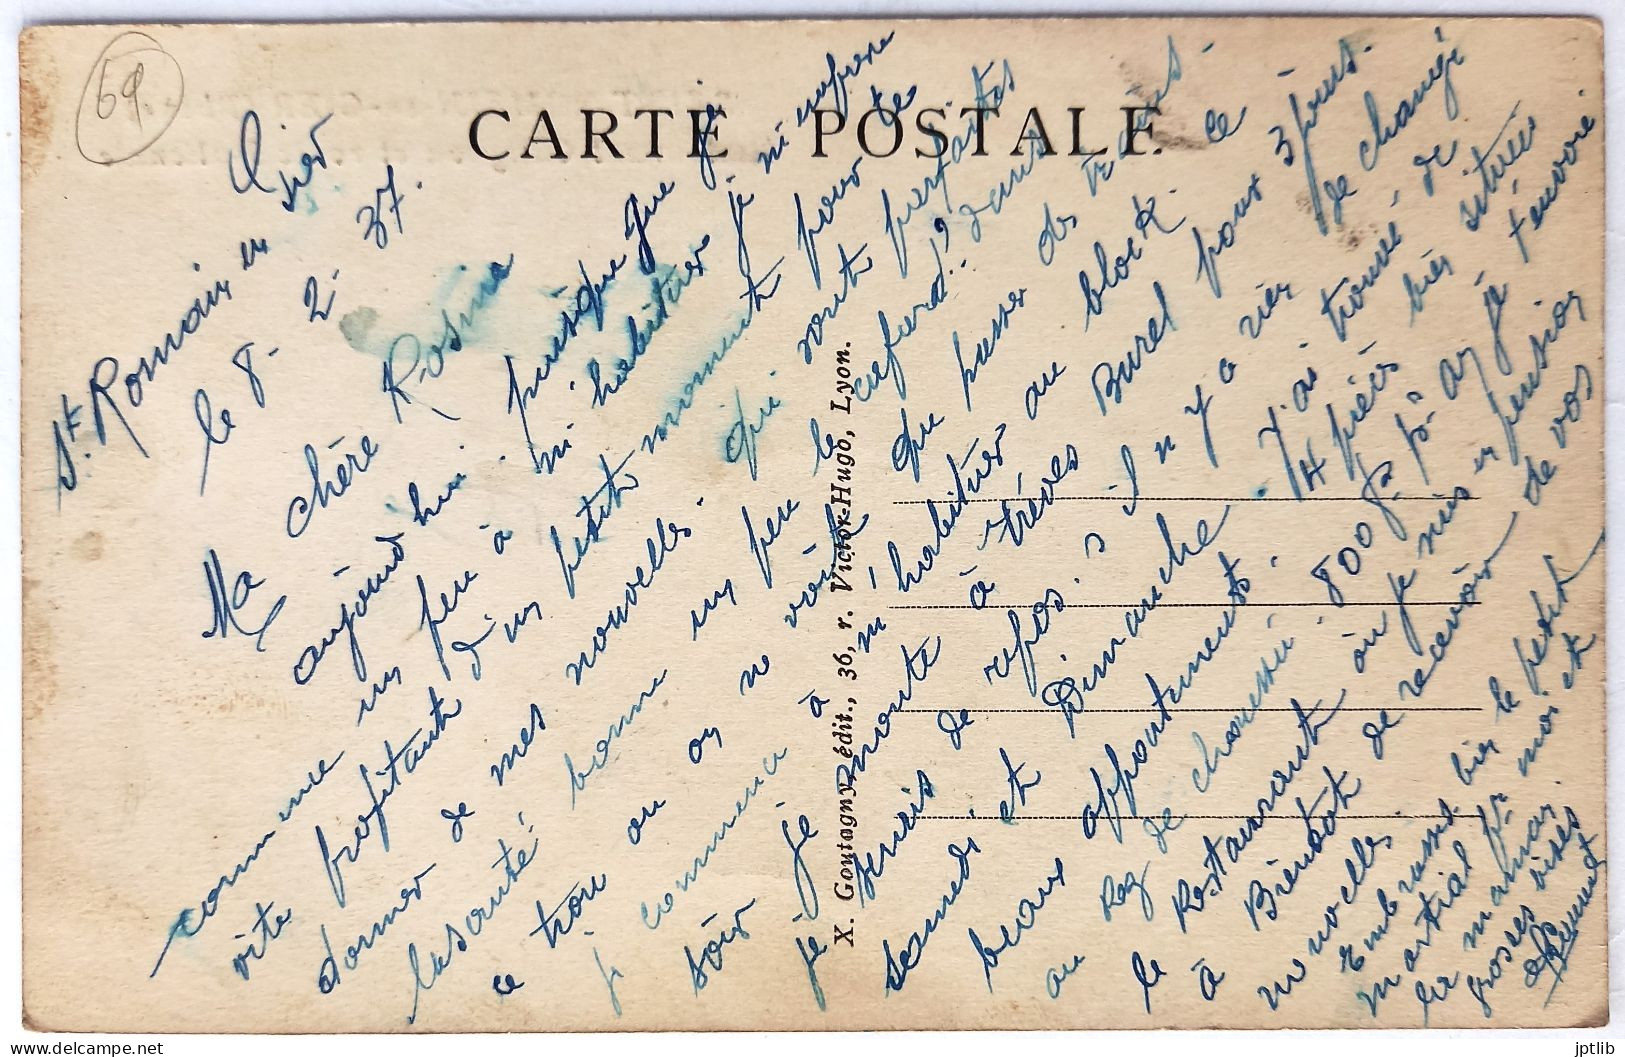 69.
CARTE POSTALE
St. Romain en
Gier
le 8. 2. 37.
Ma chère Rosina
aujourd'hui, puisque que je
commence un peu à m'habituer je m'empresse
vite profitant d'un petit moment pour te
donner de mes nouvelles. qui sont parfaites
la santé bonne un peu le cafard!! dans
ce trou ou on ne voit que passer des trains.
je commence à m'habituer au block. ce
soir je monte à Trèves Burel pour 3 jours.
je suis de repos. il n'y a rien de changé
samedi et Dimanche. J'ai trouvé de
beaux appartements. 4 pièces bien situées
au Rez de chaussée. 800 f. p. an je t'envoie
le Restaurant où je suis en pension
à Bientôt de recevoir de vos
nouvelles.
Embrasse bien le petit
Martial pr moi et
ta maman.
grosses bises
X. Goutagny, édit., 36, r. Victor-Hugo, Lyon.
jptlib